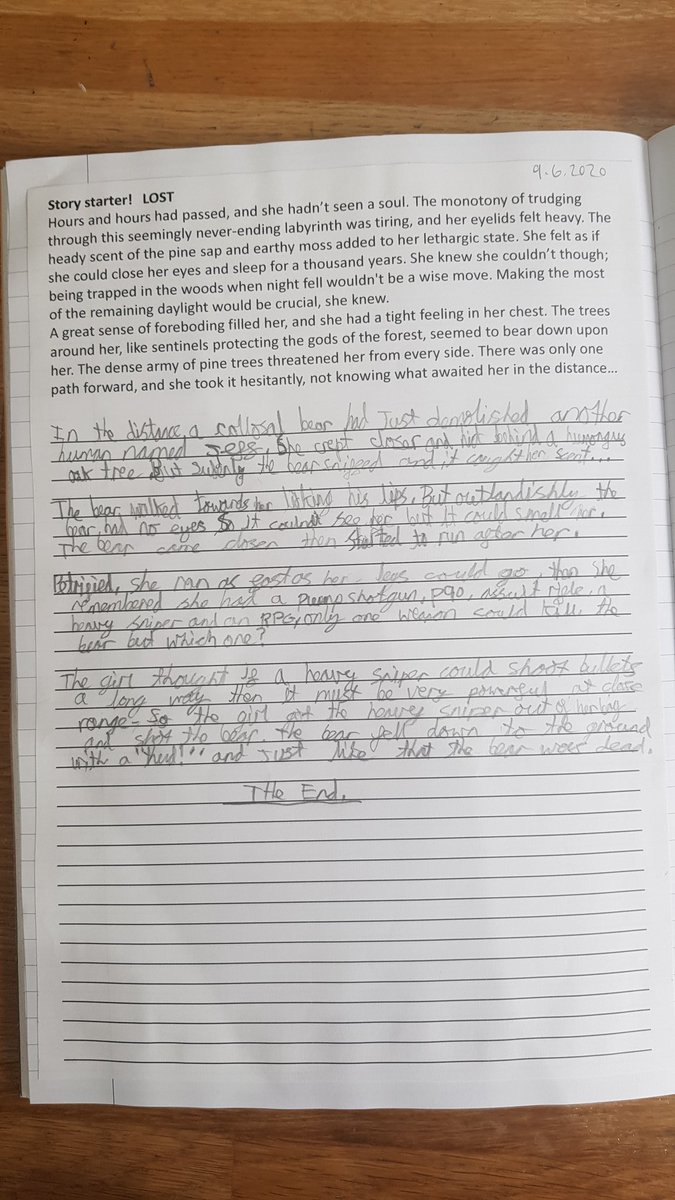 9.6.2020
Story starter! LOST
Hours and hours had passed, and she hadn't seen a soul. The monotony of trudging
through this seemingly never-ending labyrinth was tiring, and her eyelids felt heavy. The
heady scent of the pine sap and earthy moss added to her lethargic state. She felt as if
she could close her eyes and sleep for a thousand years. She knew she couldn't though;
being trapped in the woods when night fell wouldn't be a wise move. Making the most
of the remaining daylight would be crucial, she knew.
A great sense of foreboding filled her, and she had a tight feeling in her chest. The trees
around her, like sentinels protecting the gods of the forest, seemed to bear down upon
her. The dense army of pine trees threatened her from every side. There was only one
path forward, and she took it hesitantly, not knowing what awaited her in the distance...
In the distance, a collosal bear had Just demolished another
human named Jeff, She crept closer and hid behind a humongus
oak tree But the bear sniffed and it caught her scent...
The bear walked towards her licking his lips, But outlandishly the
bear had no eyes So it couldn't see her but it could smell her.
The bear came closer then started to run after her.
Petrified, she ran as fast as her legs could go, then she
remembered she had a pump shotgun, P90, assult rifle, a
heavy sniper and an RPG, only one weapon could kill the
bear but which one?
The girl thought if a heavy sniper could shoot bullets
a long way then it must be very powerful at close
range. So the girl got the heavy sniper out of her bag
and shot the bear. the bear fell down to the ground
with a and Just like that the bear was dead.
THe End.